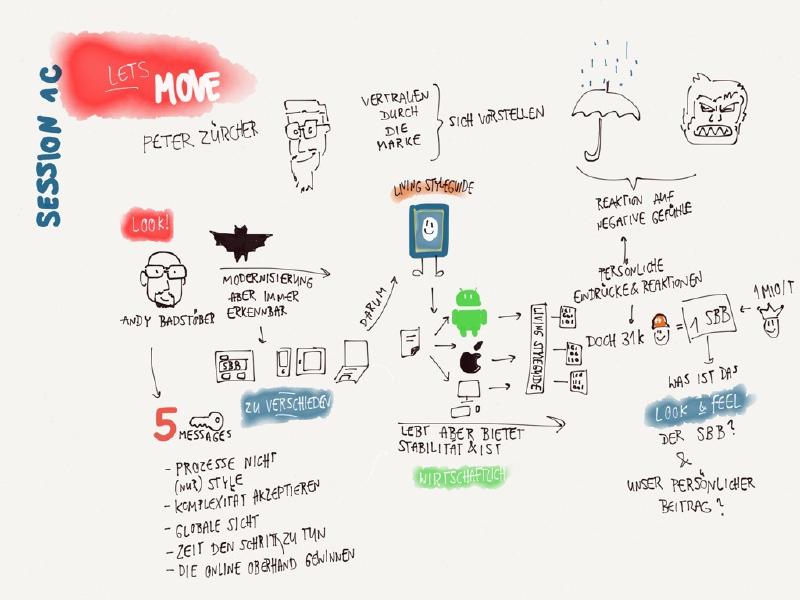 SESSION 1C
LETS
MOVE
PETER ZÜRCHER
VERTRAUEN
DURCH
DIE
MARKE
SICH VORSTELLEN
REAKTION AUF
NEGATIVE GEFÜHLE
PERSÖNLICHE
EINDRÜCKE & REAKTIONEN
DOCH 31k
=
1 SBB
1 MIO/T
WAS IST DAS
LOOK & FEEL
DER SBB?
&
UNSER PERSÖNLICHER
BEITRAG?
LOOK!
ANDY BADSTÖBER
MODERNISIERUNG
ABER IMMER
ERKENNBAR
SBB
ZU VERSCHIEDEN
DARUM
LIVING STYLEGUIDE
LIVING STYLEGUIDE
LEBT ABER BIETET
STABILITÄT & IST
WIRTSCHAFTLICH
5
MESSAGES
- PROZESSE NICHT
(NUR) STYLE
- KOMPLEXITÄT AKZEPTIEREN
- GLOBALE SICHT
- ZEIT DEN SCHRITT ZU TUN
- DIE ONLINE OBERHAND GEWINNEN